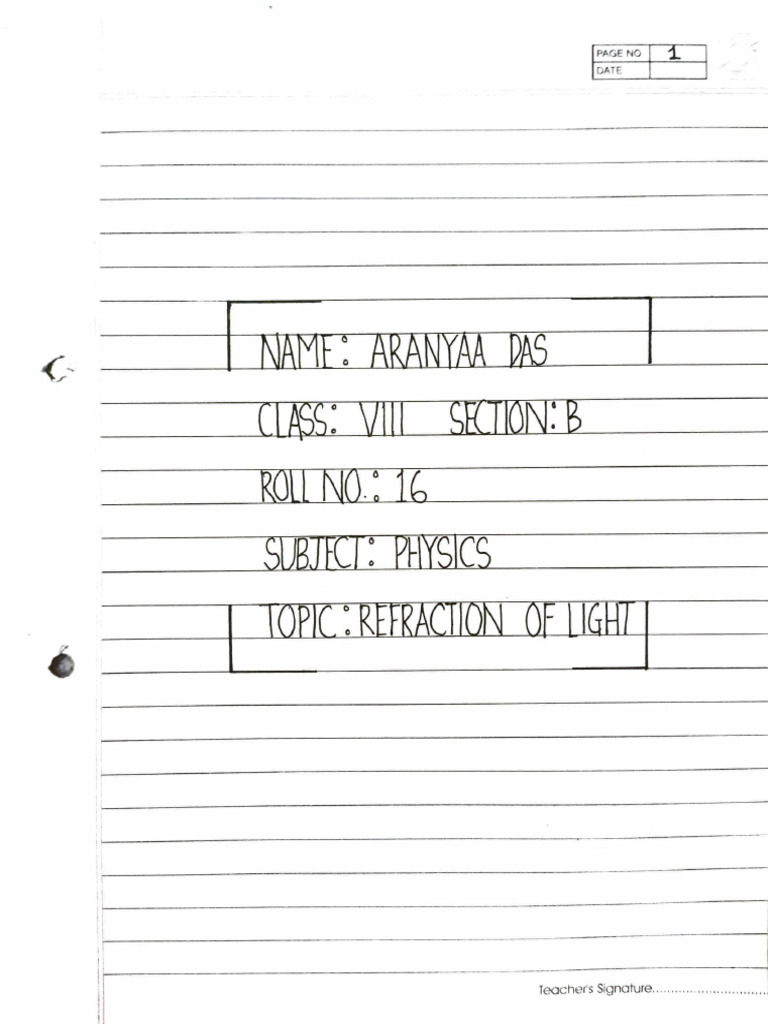 PAGE NO 1
DATE
NAME: ARANYAA DAS
CLASS: VIII SECTION: B
ROLL NO.: 16
SUBJECT: PHYSICS
TOPIC: REFRACTION OF LIGHT
Teacher's Signature................................